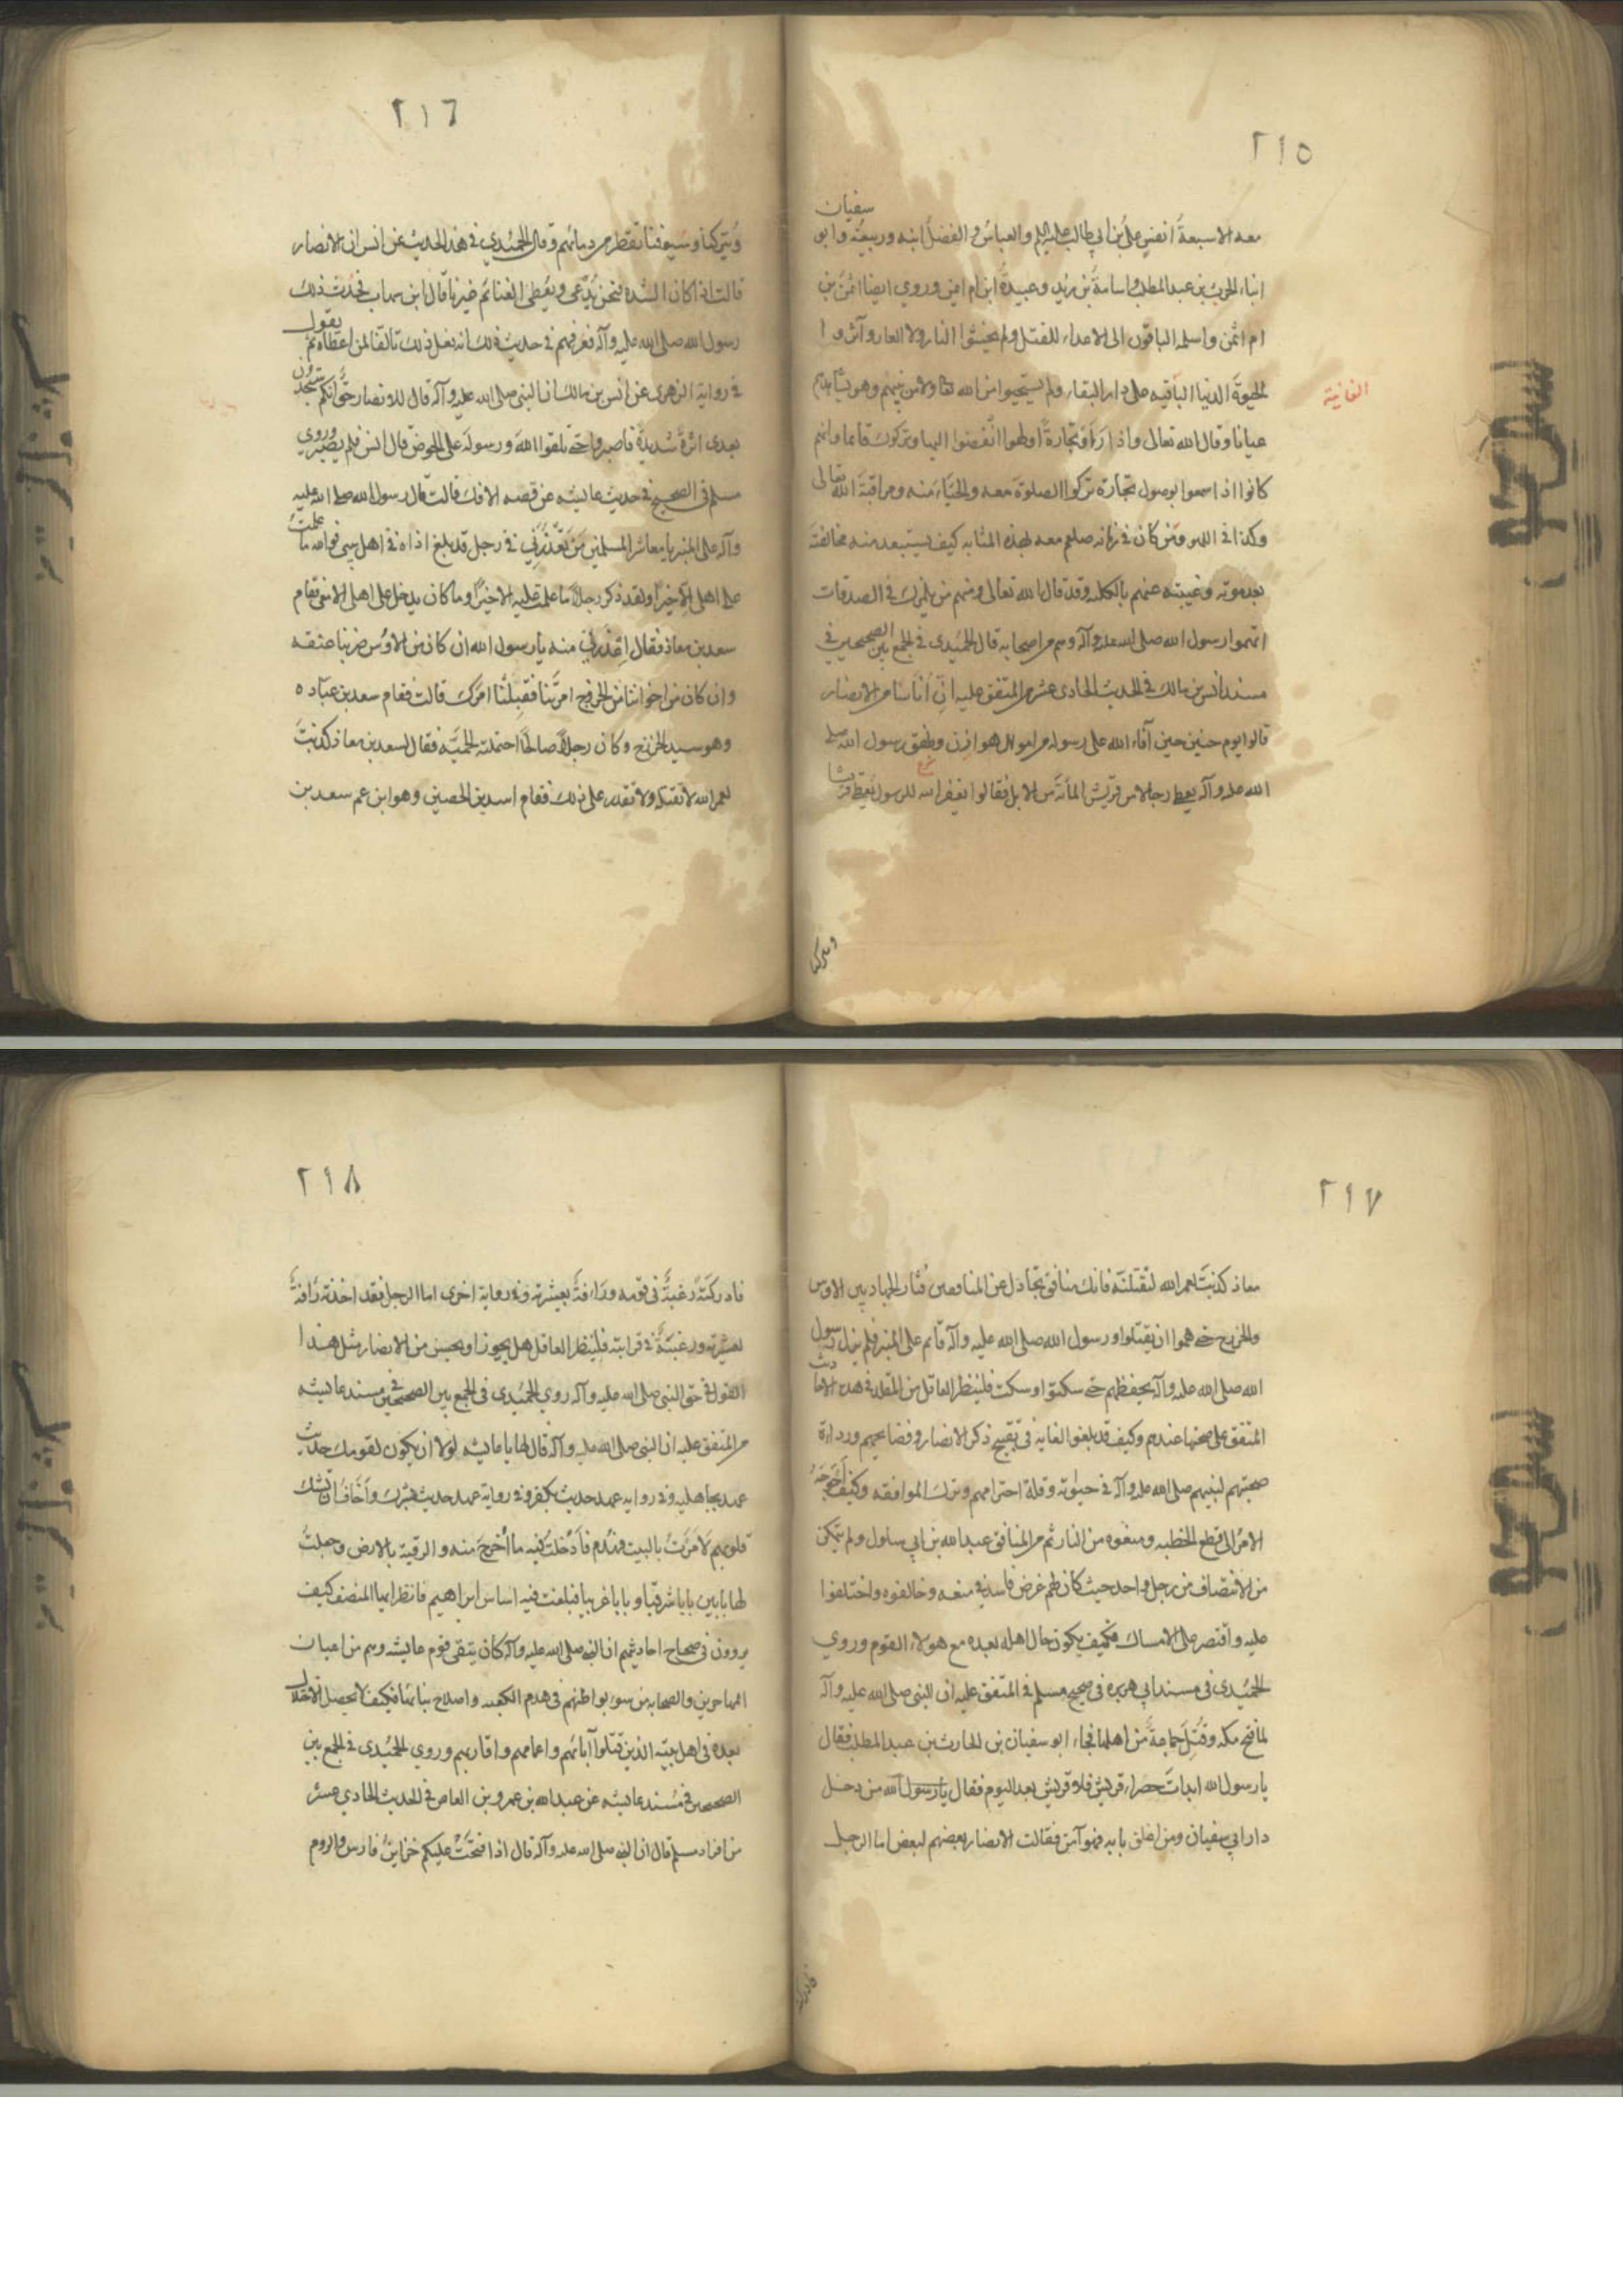 ٢١٥
معه الا سبعة انفس علي بن ابي طالب عليه السلم والعباس والفضل ابنه وربيعة وابو سفيان
ابناء الحرث بن عبد المطلب واسامة بن زيد وعبيدة ابن ام ايمن وروي ايضا ايمن بن
ام ايمن واسلمه الباقون الى الاعداء للقتل ولم يخشوا النار ولا العار وآثروا
الحيوة الدنيا الباقيه على دار البقاء ولم يستحيوا من الله تعا ولا من نبيهم وهو يشاهدهم
الفانية
عيانا وقال الله تعالى واذا رأوا تجارة او لهوا انفضوا اليها وتركوك قائما وانهم
كانوا اذا سمعوا بوصول تجارة تركوا الصلوة معه والحياء منه ومراقبة الله تعالى
وكذا في اللهو ومن كان في زمانه صلعم معه بهذه المثابه كيف يستبعد منه مخالفته
بعد موته وغيبته عنهم بالكليه وقد قال الله تعالى ومنهم من يلمزك في الصدقات
اتهموا رسول الله صلى الله عليه وآله وهم من اصحابه قال الحميدي في الجمع بين الصحيحين في
مسند انس بن مالك في الحديث الحادي عشر من المتفق عليه ان أناسا من الانصار
قالوا يوم حنين حين آفاء الله على رسوله من اموال هوازن وطفق رسول الله صلى
الله عليه وآله يعطي رجالا من قريش المائة من الابل فقالوا يغفر الله للرسول يعطي قريشا
ويتركنا
٢١٦
ويتركنا وسيوفنا تقطر من دمائهم وقال الحميدي في هذا الحديث عن انس ان الانصار
قالت اذا كان الشده فنحن ندعى ويعطى الغنائم غيرنا قال ابن شهاب فحدث ذلك
رسول الله صلى الله عليه وآله فعرفهم في حديث ذلك انه يفعل ذلك تالفا لمن اعطاه ثم يقول
في رواية الزهري عن انس بن مالك ان النبي صلى الله عليه وآله قال للانصار حتى انكم ستجدون
بعدى اثرة شديدة فاصبروا حتى تلقوا الله ورسوله على الحوض قال انس فلم يصبر وروى
مسلم فى الصحيح في حديث عايشه عن قصه الافك قالت قال رسول الله صلى الله عليه
وآله على المنبر يا معاشر المسلمين من يعذرني في رجل قد بلغ اذاه في اهل بيتي فوالله ما علمت
على اهلي الا خيرا ولقد ذكر رجلا ما علمت عليه الا خيرا وما كان يدخل على اهلى الا معى فقام
سعد بن معاذ فقال اعذرني منه يا رسول الله ان كان من الاوس ضربنا عنقه
وان كان من اخواننا من الخزرج امرتنا ففعلنا امرك قالت فقام سعد بن عباده
وهو سيد الخزرج وكان رجلا صالحا احتملته الحميه فقال لسعد بن معاذ كذبت
لعمر الله لا تقتله ولا تقدر على ذلك فقام اسد بن الحصين وهو ابن عم سعد بن
٢١٧
معاذ كذبت لعمر الله لنقتلنه فانك منافق تجادل عن المنافقين فثار الحيان الاوس
والخزرج حتى هموا ان يقتتلوا ورسول الله صلى الله عليه وآله قائم على المنبر فلم يزل رسول
الله صلى الله عليه وآله يخفضهم حتى سكتوا وسكت فلينظر العاقل من المقلد في هذه الاحاديث
المتفق على صحتها عندهم وكيف قد بلغوا الغايه في تقبيح ذكر الانصار وفضايحهم ورداءة
صحبتهم لنبيهم صلى الله عليه وآله في حيوته وقلة احترامهم وترك الموافقه وكيف أحوجه
الامر الى قطع الخطبه ومنعوه من التاثر من المنافق عبد الله بن ابي سلول ولم يتمكن
من الانتصاف من رجل واحد حيث كان لهم غرض فاسد في منعه وخالفوه واختلفوا
عليه واقتصر على الامساك فكيف يكون حال اهله بعده مع هولاء القوم وروي
الحميدي في مسند ابي هريره في صحيح مسلم في المتفق عليه ان النبي صلى الله عليه وآله
لما فتح مكه وقتل جماعة من اهلها فجاء ابو سفيان بن الحارث بن عبد المطلب فقال
يا رسول الله ابيدت خضراء قريش فلا قريش بعد اليوم فقال يا رسول الله من دخل
دار ابي سفيان ومن اغلق بابه فهو آمن فقالت الانصار بعضهم لبعض اما الرجل
٢١٨
فادركته رغبة في قومه ورافة بعشيرته وفي رواية اخرى اما الرجل فقد اخذته رافة
لعشيرته ورغبة في قرابته فلينظر العاقل هل يجوز او يحسن من الانصار مثل هذا
القول في حق النبي صلى الله عليه وآله روي الحميدي في الجمع بين الصحيحين في مسند عايشه
من المتفق عليه ان النبي صلى الله عليه وآله قال لها يا عايشه لولا ان يكون لقومك حديث
عهد بجاهليه وفي رواية عهد حديث بكفر وفي رواية عهد حديث بشرك وأخاف ان تنكر
قلوبهم لأمرت بالبيت فهدم فادخلت فيه ما اخرج منه والزقته بالارض وجعلت
لها بابين بابا شرقيا وبابا غربيا فبلغت فيه اساس ابراهيم فانظر ايها المنصف كيف
يروون في صحاح احاديثهم ان النبي صلى الله عليه وآله كان يتقي قوم عايشه وهم من اعيان
المهاجرين والصحابه من سوء بواطنهم في هدم الكعبه واصلاح بنائها فكيف لا يحصل الاختلال
بعده في اهل بيته الذين قتلوا آبائهم واعمامهم واقاربهم وروي الحميدي في الجمع بين
الصحيحين في مسند عايشه عن عبد الله بن عمرو بن العاص في الحديث الحادي عشر
من افراد مسلم قال ان النبي صلى الله عليه وآله قال اذا فتحت عليكم خزاين فارس والروم